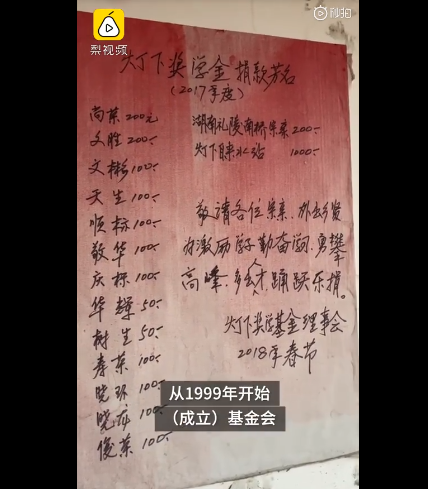 梨视频
秒拍
灯下奖学金捐款芳名
(2017年度)
尚荣200元
文胜200-
文彬100-
天生100-
顺标100-
敬华100-
庆标100-
华辉50-
树生50-
寿荣100-
晓环100-
晓
100-
俊荣100-
湖南礼陵南桥宗亲200-
灯下自来水站 1000-
敬请各位宗亲、外出乡贤
为激励学子勤奋学习,勇攀
高峰,多出人才,踊跃乐捐。
灯下奖学基金理事会
2018年春节
从1999年开始
(成立)基金会